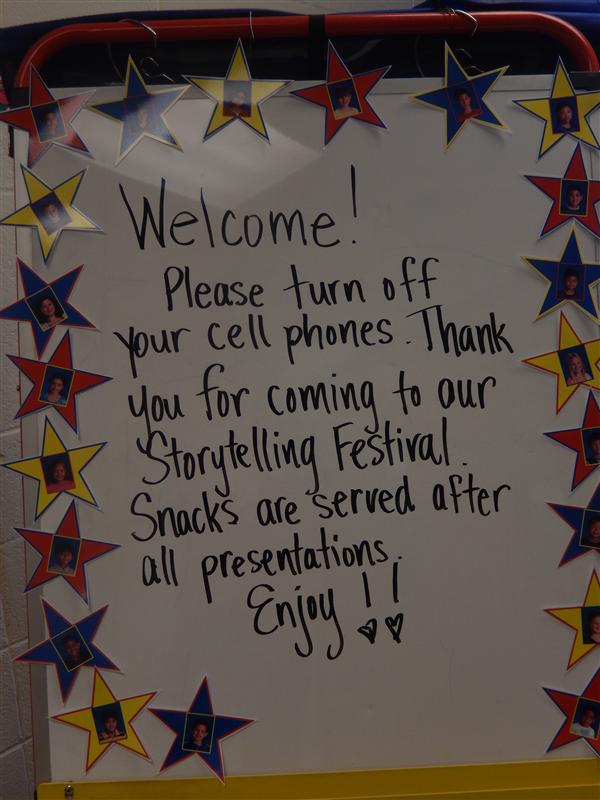 Welcome!
Please turn off
your cell phones. Thank
you for coming to our
Storytelling Festival.
Snacks are served after
all presentations.
Enjoy!!